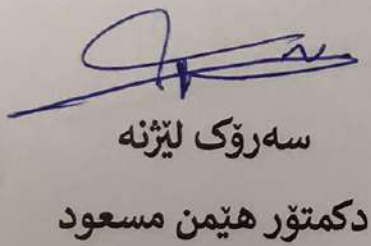 سەرۆک لێژنە
دکمتۆر هێمن مسعود